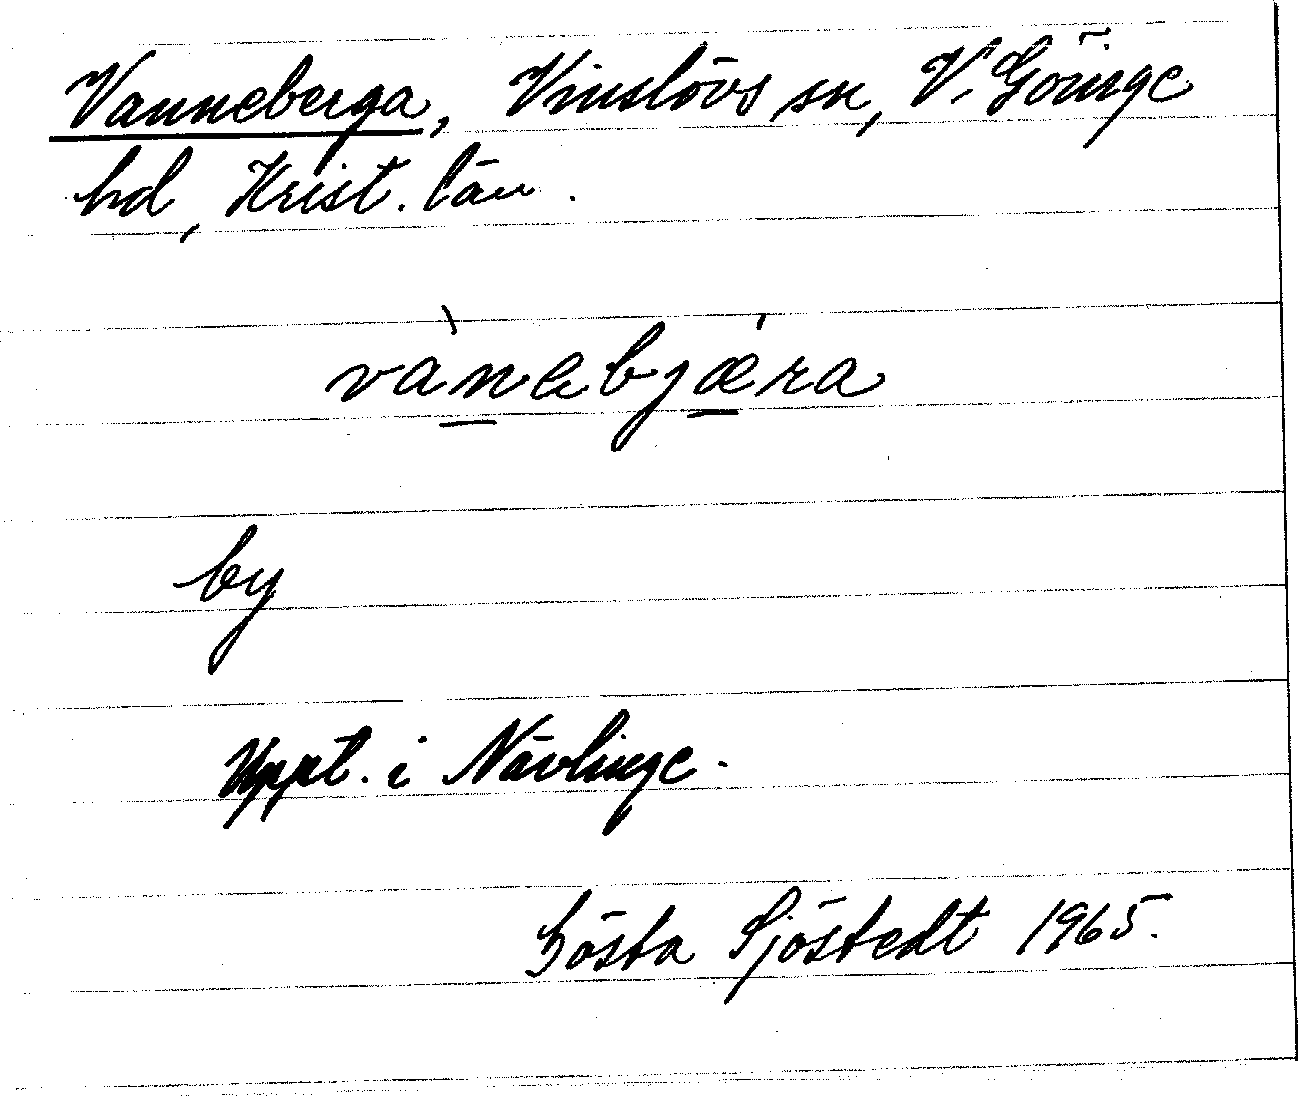 Vanneberga, Vinslövs sn, V. Göinge
hd, Krist. län.
vànebjǽra
by
Uppt. i Nävlinge.
Gösta Sjöstedt 1965.